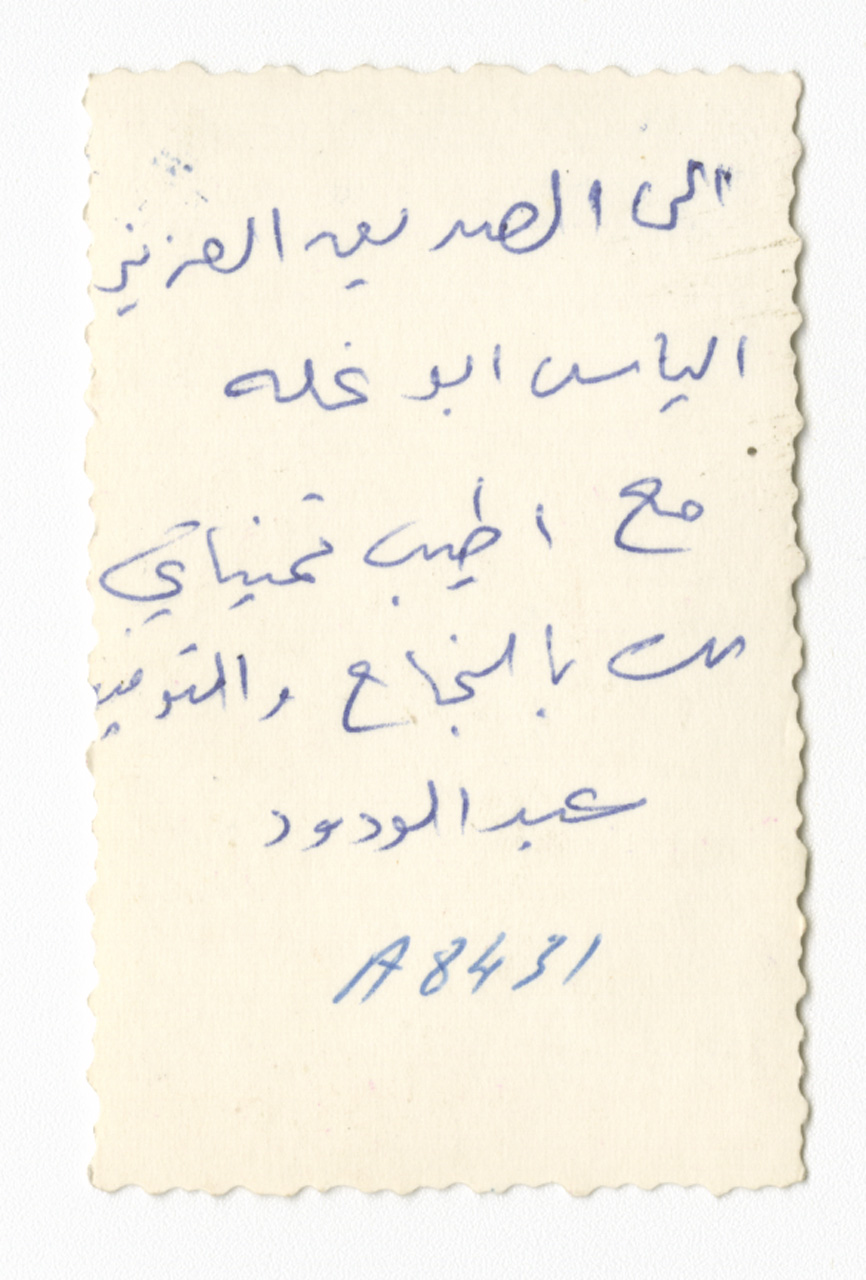 الى الصديق العزيز
الياس ابو نحله
مع اطيب تمنياتي
لك بالنجاح والتوفيق
عبد الودود
A8431